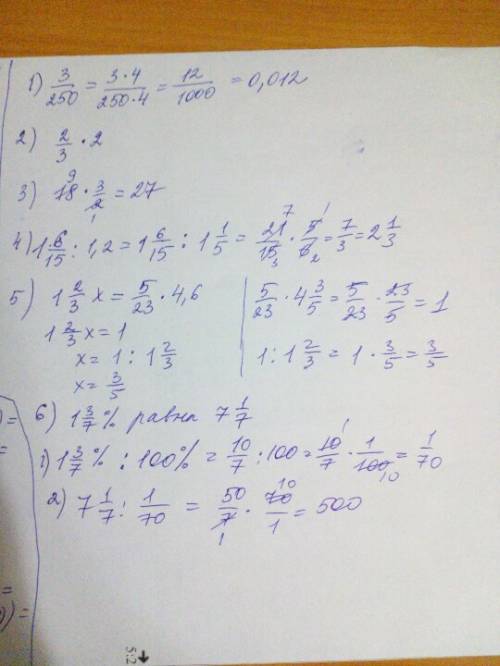 1) 3/250 = 3·4/250·4 = 12/1000 = 0,012
2) 2/3 · 2
3) 18 9 · 3/2 1 = 27
4) 1 6/15 : 1,2 = 1 6/15 : 1 1/5 = 21 7/15 3 · 5 1/6 2 = 7/3 = 2 1/3
5) 1 2/3 x = 5/23 · 4,6
1 2/3 x = 1
x = 1 : 1 2/3
x = 3/5
5/23 · 4 3/5 = 5/23 · 23/5 = 1
1 : 1 2/3 = 1 · 3/5 = 3/5
6) 1 3/7 % равна 7 1/7
1) 1 3/7 % : 100% = 10/7 : 100 = 10 1/7 · 1/100 10 = 1/70
2) 7 1/7 : 1/70 = 50/7 1 · 70 10/1 = 500
)=
=
=
))=